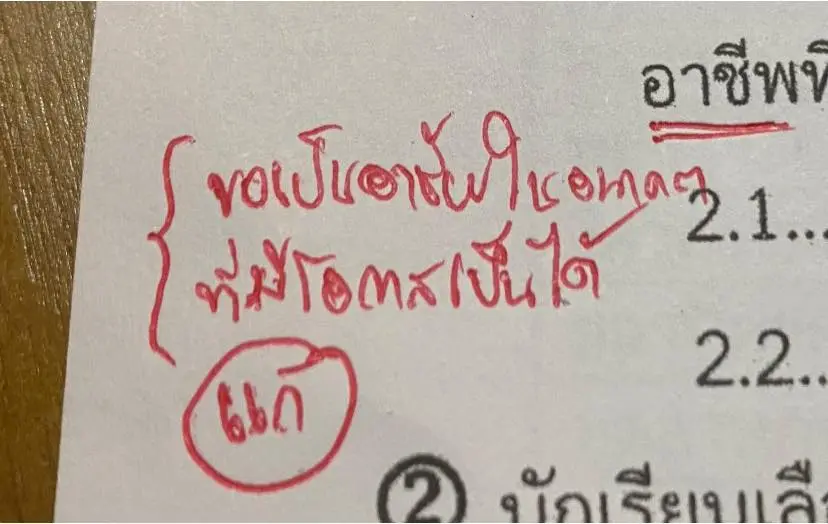 อาชีพที
ขอเป็นอาชีพในอนาคต
ที่มีโอกาสเป็นได้
แก้
2.1...
2.2...
② นักเรียนเลื